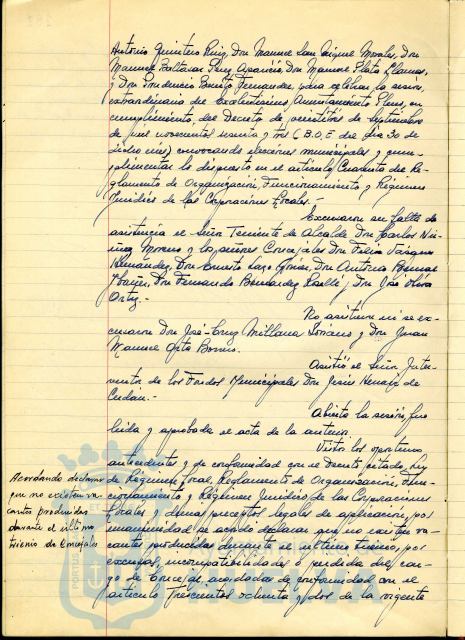 Antonio Quintero Ruiz, Don Manuel San Miguel Morales, Don
Manuel Baltasar Pérez Aparicio, Don Manuel Plata Llamas,
y Don Prudencio Benito Fernández, para celebrar la sesión
extraordinaria del Excelentísimo Ayuntamiento Pleno, en
cumplimiento, del Decreto de veintitrés de septiembre
de mil novecientos sesenta y tres (B.O.E. del día 30 de
dicho mes) convocando elecciones municipales y cum-
plimentar lo dispuesto en el artículo Cuarenta del Re-
glamento de Organización, Funcionamiento y Régimen
Jurídico de las Corporaciones Locales.-
Excusaron su falta de
asistencia el Señor Teniente de Alcalde Don Carlos
Moreno y los señores Concejales Don Félix Vázquez
Hernández, Don Ernesto Don Antonio
Don Fernando Bernardez y Don José Oliva
Ortiz.-
No asistieron ni se ex-
cusaron Don José-Cruz Millana Soriano y Don Juan
Manuel Borrero.
Asistió el Señor Inter-
ventor de los Fondos Municipales Don Jesús de
Abierta la sesión, fue
leída y aprobada el acta de la anterior.
Vistos los oportunos
antecedentes y de conformidad con el Decreto citado, Ley
de Régimen Local, Reglamento de Organización, Fun-
cionamiento y Régimen Jurídico de las Corporaciones
Locales y demás preceptos legales de aplicación, por
unanimidad se acordó declarar que no existen va-
cantes producidas durante el último trienio, por
excusas, incompatibilidades o pérdida del car-
go de Concejal, de conformidad con el
artículo Trescientos ochenta y dos de la vigente
Acordando declarar
que no existen va-
cantes producidas
durante el último
trienio de Concejales